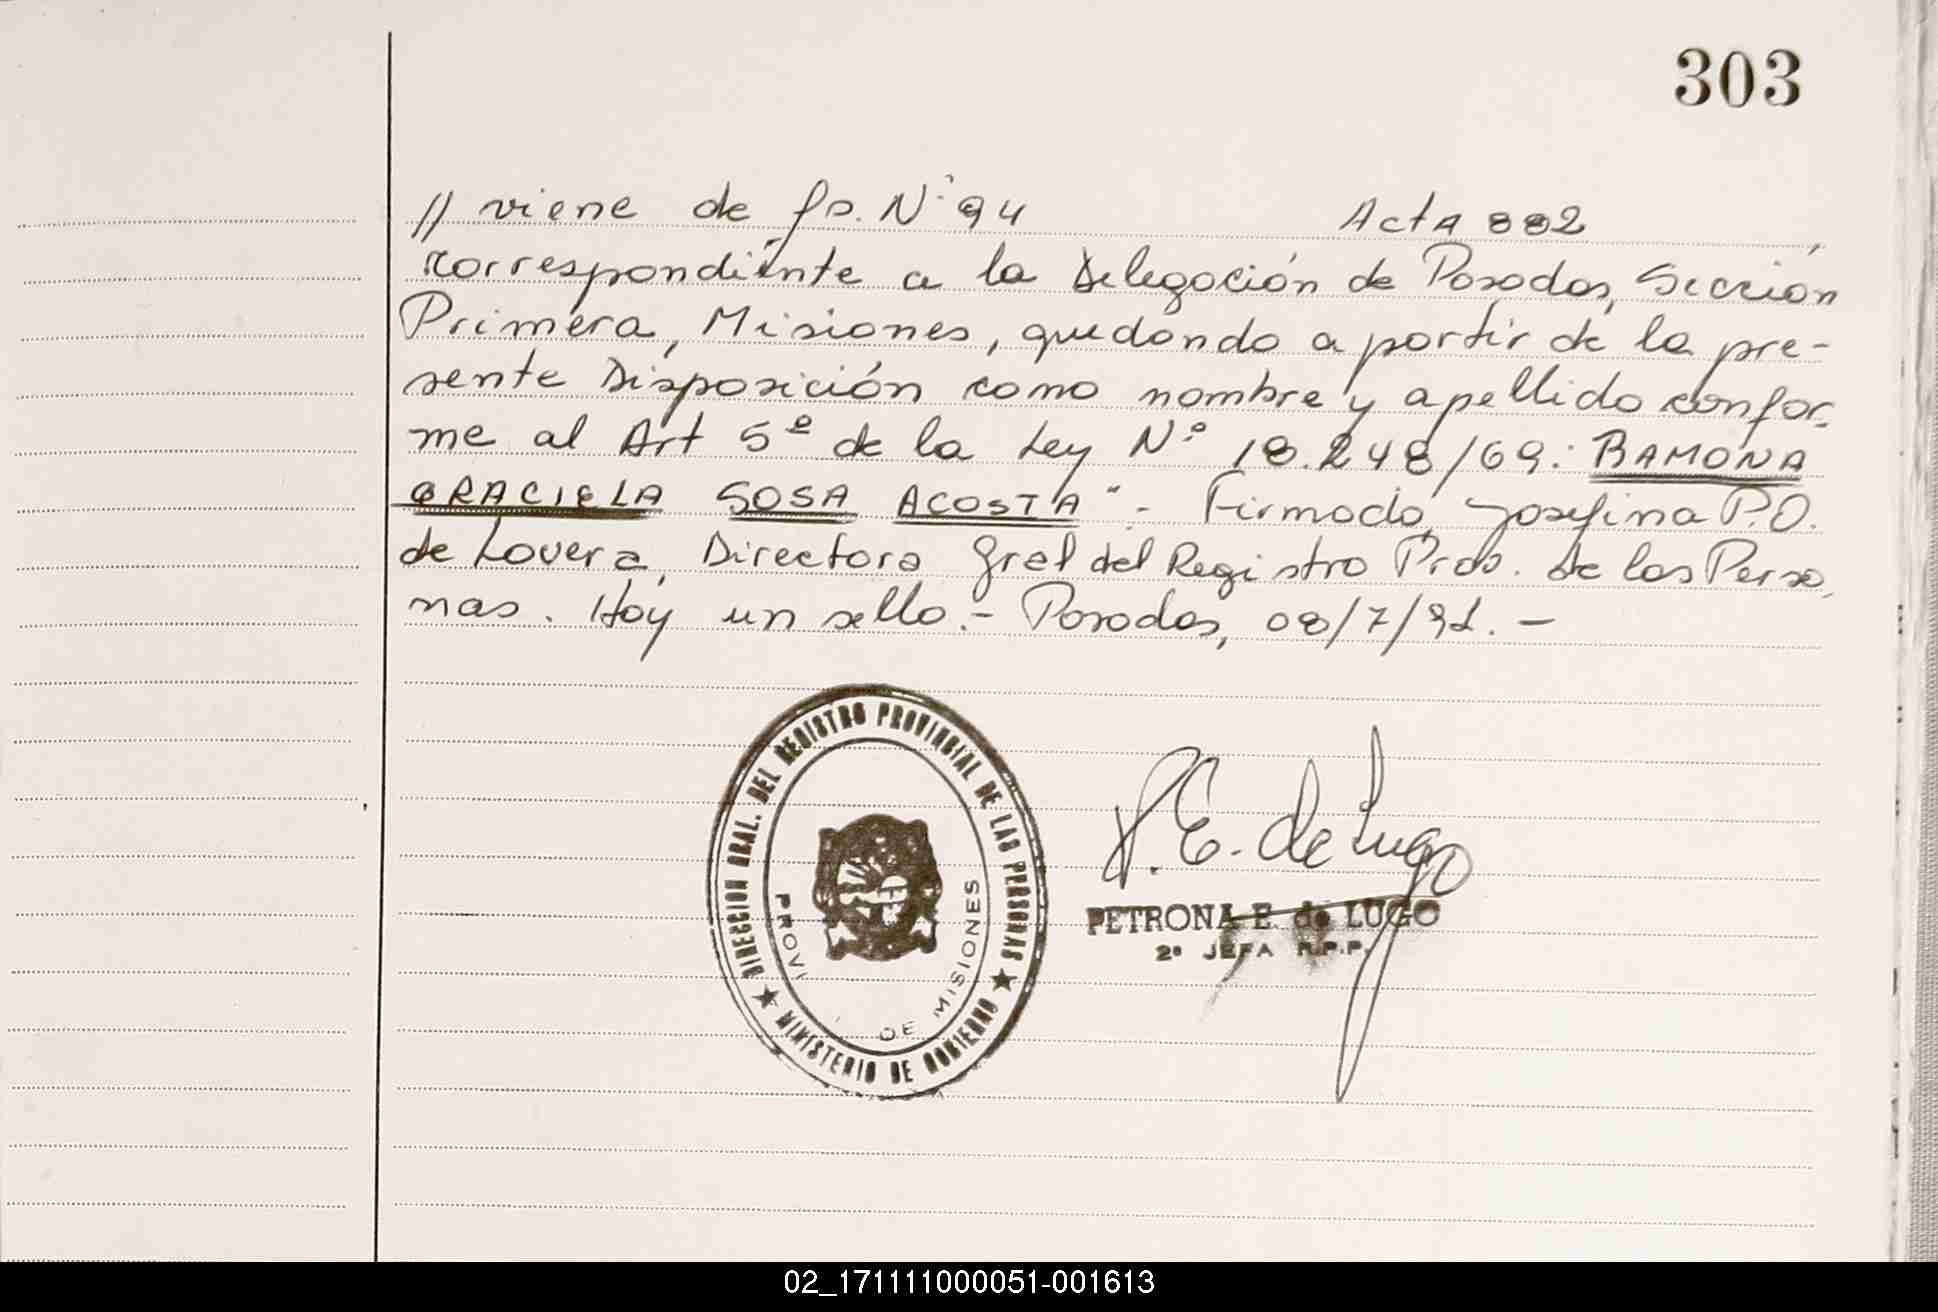 303
// viene de fs. Nº 94 Acta 882
correspondiente a la Delegación de Posadas, Sección
Primera, Misiones, quedando a partir de la pre-
sente Disposición como nombre y apellido confor-
me al Art 5º de la Ley Nº 18.248/69: RAMONA
GRACIELA SOSA ACOSTA" - Firmado, Josefina P.O.
de Lovera, Directora Gral del Registro Prov. de las Perso-
nas. Hay un sello.- Posadas, 08/7/91. -
DIRECCION GRAL. DEL REGISTRO PROVINCIAL DE LAS PERSONAS
PROVI DE MISIONES
★ MINISTERIO DE GOBIERNO ★
P.E. de Lugo
PETRONA E. de LUGO
2º JEFA R.P.P.
02_171111000051-001613